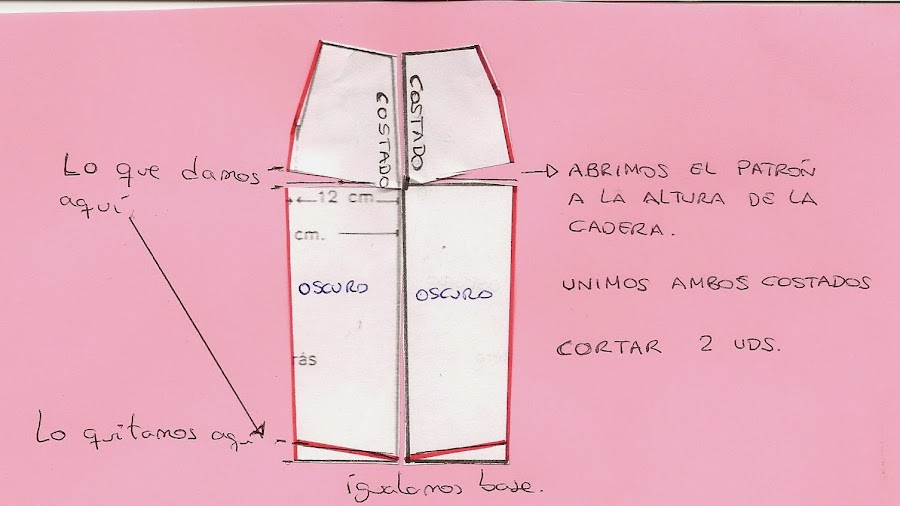 COSTADO
COSTADO
Lo que damos
aquí.
→ ABRIMOS EL PATRÓN
A LA ALTURA DE LA
CADERA.
←12 cm.
cm.
OSCURO
OSCURO
UNIMOS AMBOS COSTADOS
CORTAR 2 UDS.
rás
Lo quitamos aquí
igualamos base.